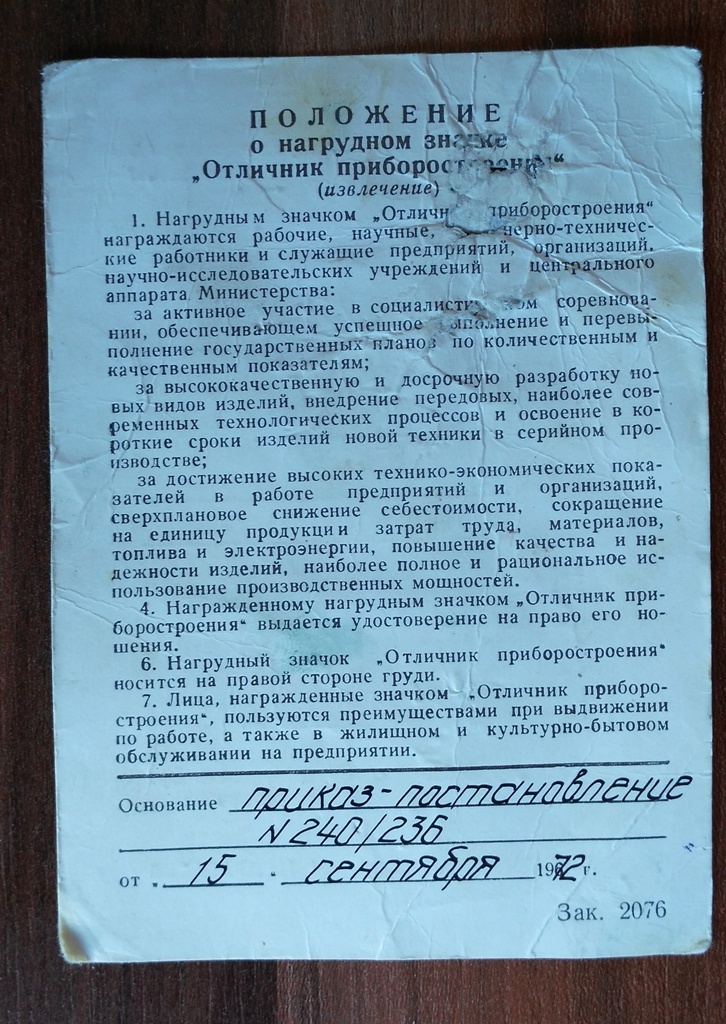 ПОЛОЖЕНИЕ
о нагрудном значке
„Отличник приборостроения“
(извлечение)
1. Нагрудным значком „Отличн приборостроения“
награждаются рабочие, научные, нерно-техничес-
кие работники и служащие предприятий, организаций,
научно-исследовательских учреждений и центрального
аппарата Министерства:
за активное участие в социалистическом соревнова-
нии, обеспечивающем успешное выполнение и перевы-
полнение государственных планов по количественным и
качественным показателям;
за высококачественную и досрочную разработку но-
вых видов изделий, внедрение передовых, наиболее сов-
ременных технологических процессов и освоение в ко-
роткие сроки изделий новой техники в серийном про-
изводстве;
за достижение высоких технико-экономических пока-
зателей в работе предприятий и организаций,
сверхплановое снижение себестоимости, сокращение
на единицу продукции затрат труда, материалов,
топлива и электроэнергии, повышение качества и на-
дежности изделий, наиболее полное и рациональное ис-
пользование производственных мощностей.
4. Награжденному нагрудным значком „Отличник при-
боростроения“ выдается удостоверение на право его но-
шения.
6. Нагрудный значок „Отличник приборостроения“
носится на правой стороне груди.
7. Лица, награжденные значком „Отличник приборо-
строения“, пользуются преимуществами при выдвижении
по работе, а также в жилищном и культурно-бытовом
обслуживании на предприятии.
Основание приказ-постановление
N 240/236
от 15 сентября 1972 г.
Зак. 2076